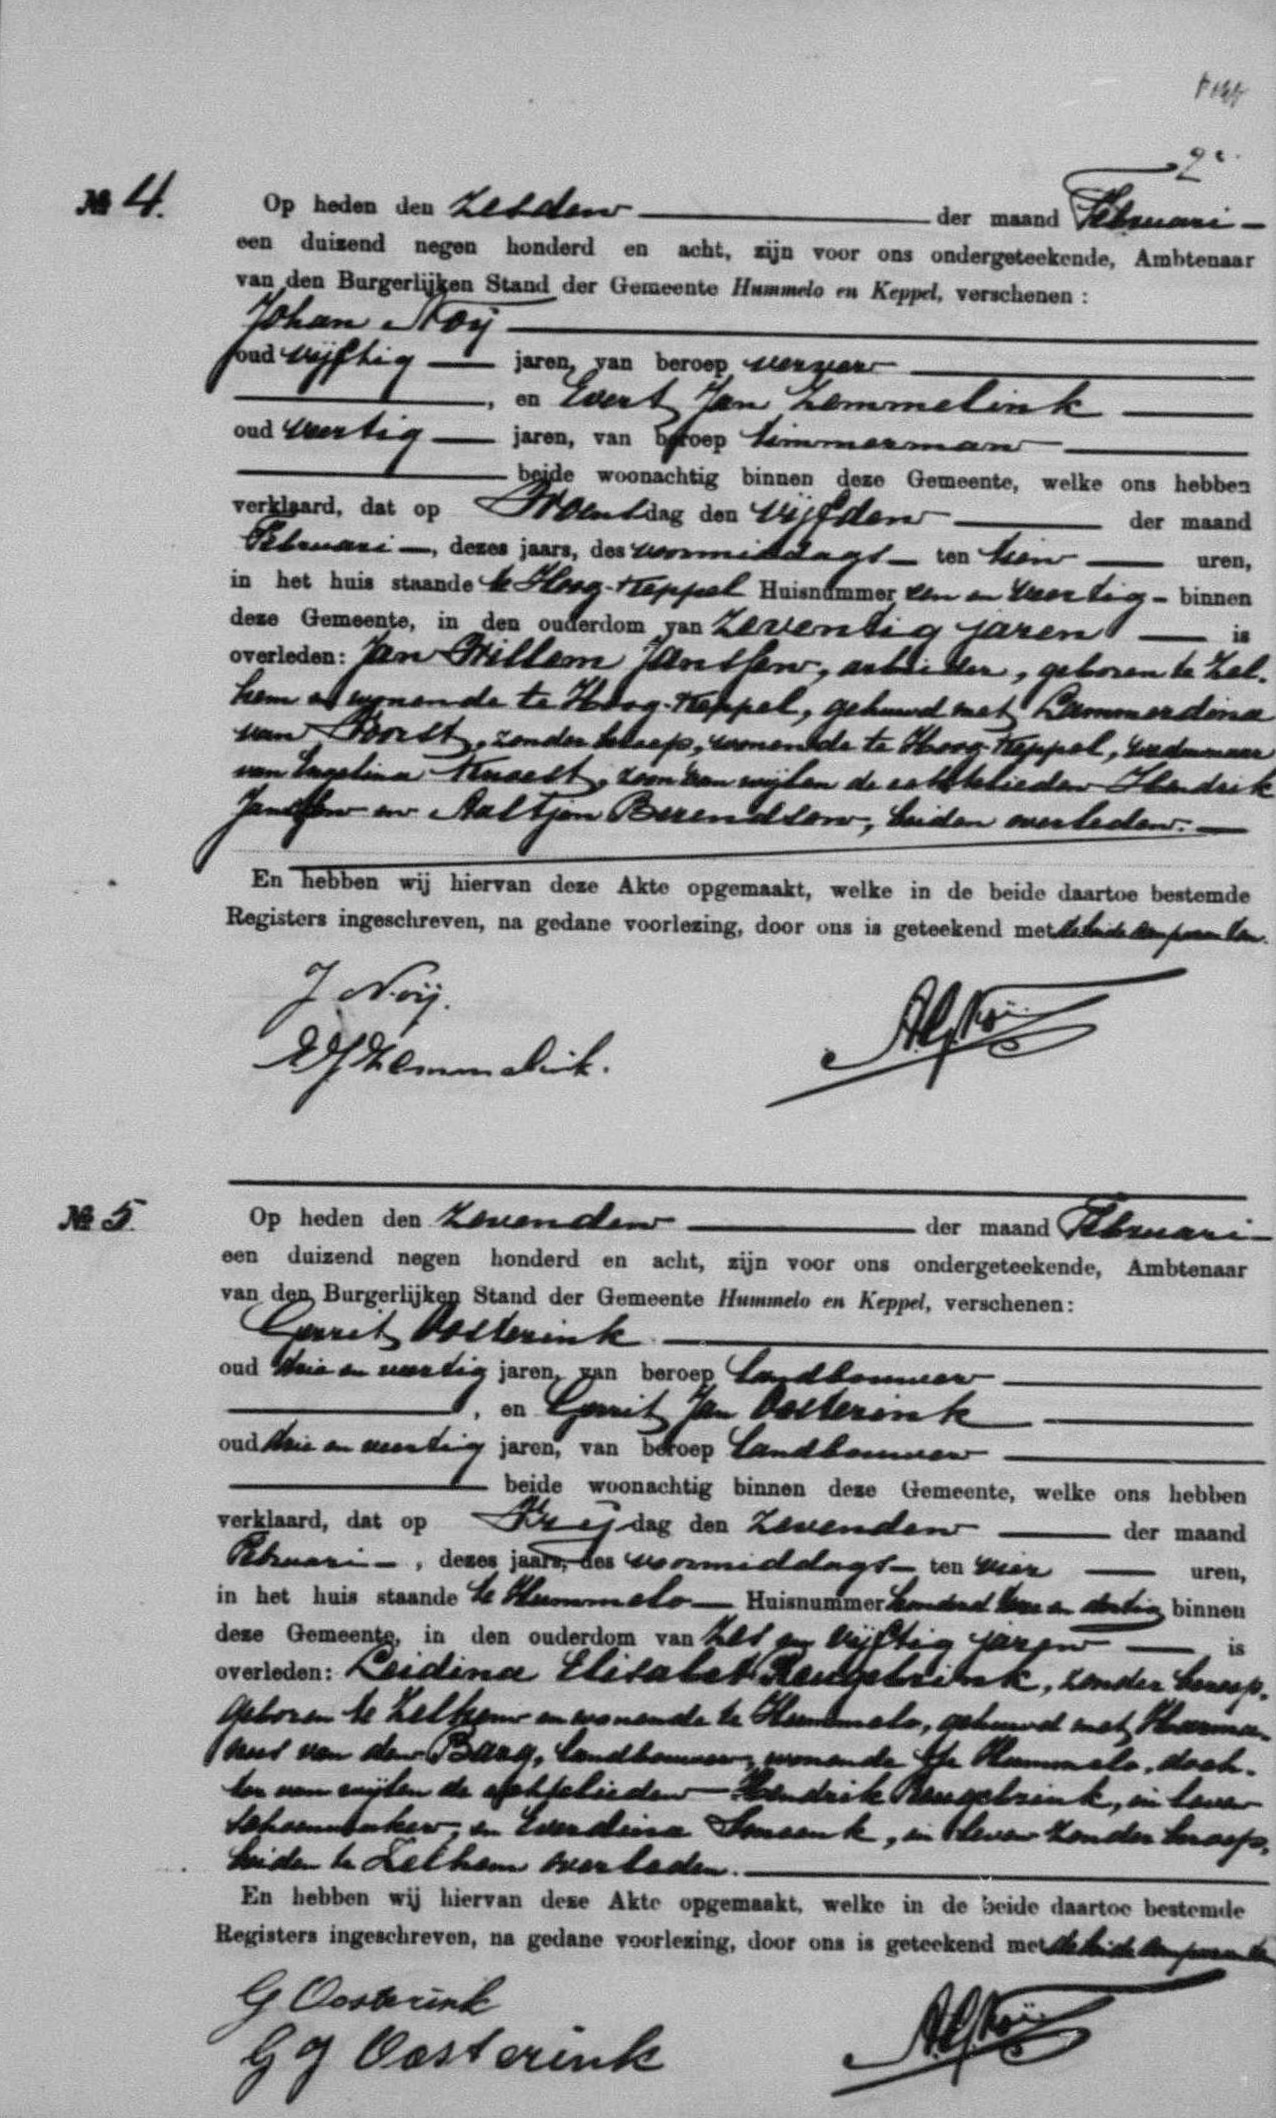 2e
№ 4.
Op heden den Zesden der maand Februari
een duizend negen honderd en acht, zijn voor ons ondergeteekende, Ambtenaar
van den Burgerlijken Stand der Gemeente Hummelo en Keppel, verschenen:
Johan Noij
oud vijftig jaren, van beroep verver
, en Evert Jan Zemmelink
oud veertig jaren, van beroep timmerman
beide woonachtig binnen deze Gemeente, welke ons hebben
verklaard, dat op Woensdag den vijfden der maand
Februari, dezes jaars, des voormiddags ten tien uren,
in het huis staande te Hoog-Keppel Huisnummer een en veertig binnen
deze Gemeente, in den ouderdom van Zeventig jaren is
overleden: Jan Willem Janssen, arbeider, geboren te Zel-
hem en wonende te Hoog-Keppel, gehuwd met Lammerdina
van Voorst, zonder beroep, wonende te Hoog-Keppel, weduwnaar
van Engelina Knaest, zoon van wijlen de echtelieden Hendrik
Janssen en Aaltjen Berendsen, beiden overleden.
En hebben wij hiervan deze Akte opgemaakt, welke in de beide daartoe bestemde
Registers ingeschreven, na gedane voorlezing, door ons is geteekend met de beide comparanten.
J Noij.
EJ Zemmelink.
№ 5.
Op heden den Zevenden der maand Februari
een duizend negen honderd en acht, zijn voor ons ondergeteekende, Ambtenaar
van den Burgerlijken Stand der Gemeente Hummelo en Keppel, verschenen:
Gerrit Oosterink
oud drie en veertig jaren, van beroep landbouwer
, en Gerrit Jan Oosterink
oud drie en veertig jaren, van beroep landbouwer
beide woonachtig binnen deze Gemeente, welke ons hebben
verklaard, dat op Vrijdag den Zevenden der maand
Februari, dezes jaars, des voormiddags ten vier uren,
in het huis staande te Hummelo Huisnummer honderd twee en dertig binnen
deze Gemeente, in den ouderdom van Zes en vijftig jaren is
overleden: Leidina Elisabet Reugebrink, zonder beroep,
geboren te Zelhem en wonende te Hummelo, gehuwd met Harma-
nus van den Barg, landbouwer, wonende te Hummelo, doch-
ter van wijlen de echtelieden Hendrik Reugebrink, in leven
schoenmaker, en Everdina Smeenk, in leven zonder beroep,
beiden te Zelhem overleden.
En hebben wij hiervan deze Akte opgemaakt, welke in de beide daartoe bestemde
Registers ingeschreven, na gedane voorlezing, door ons is geteekend met de beide comparanten
G Oosterink
G J Oosterink